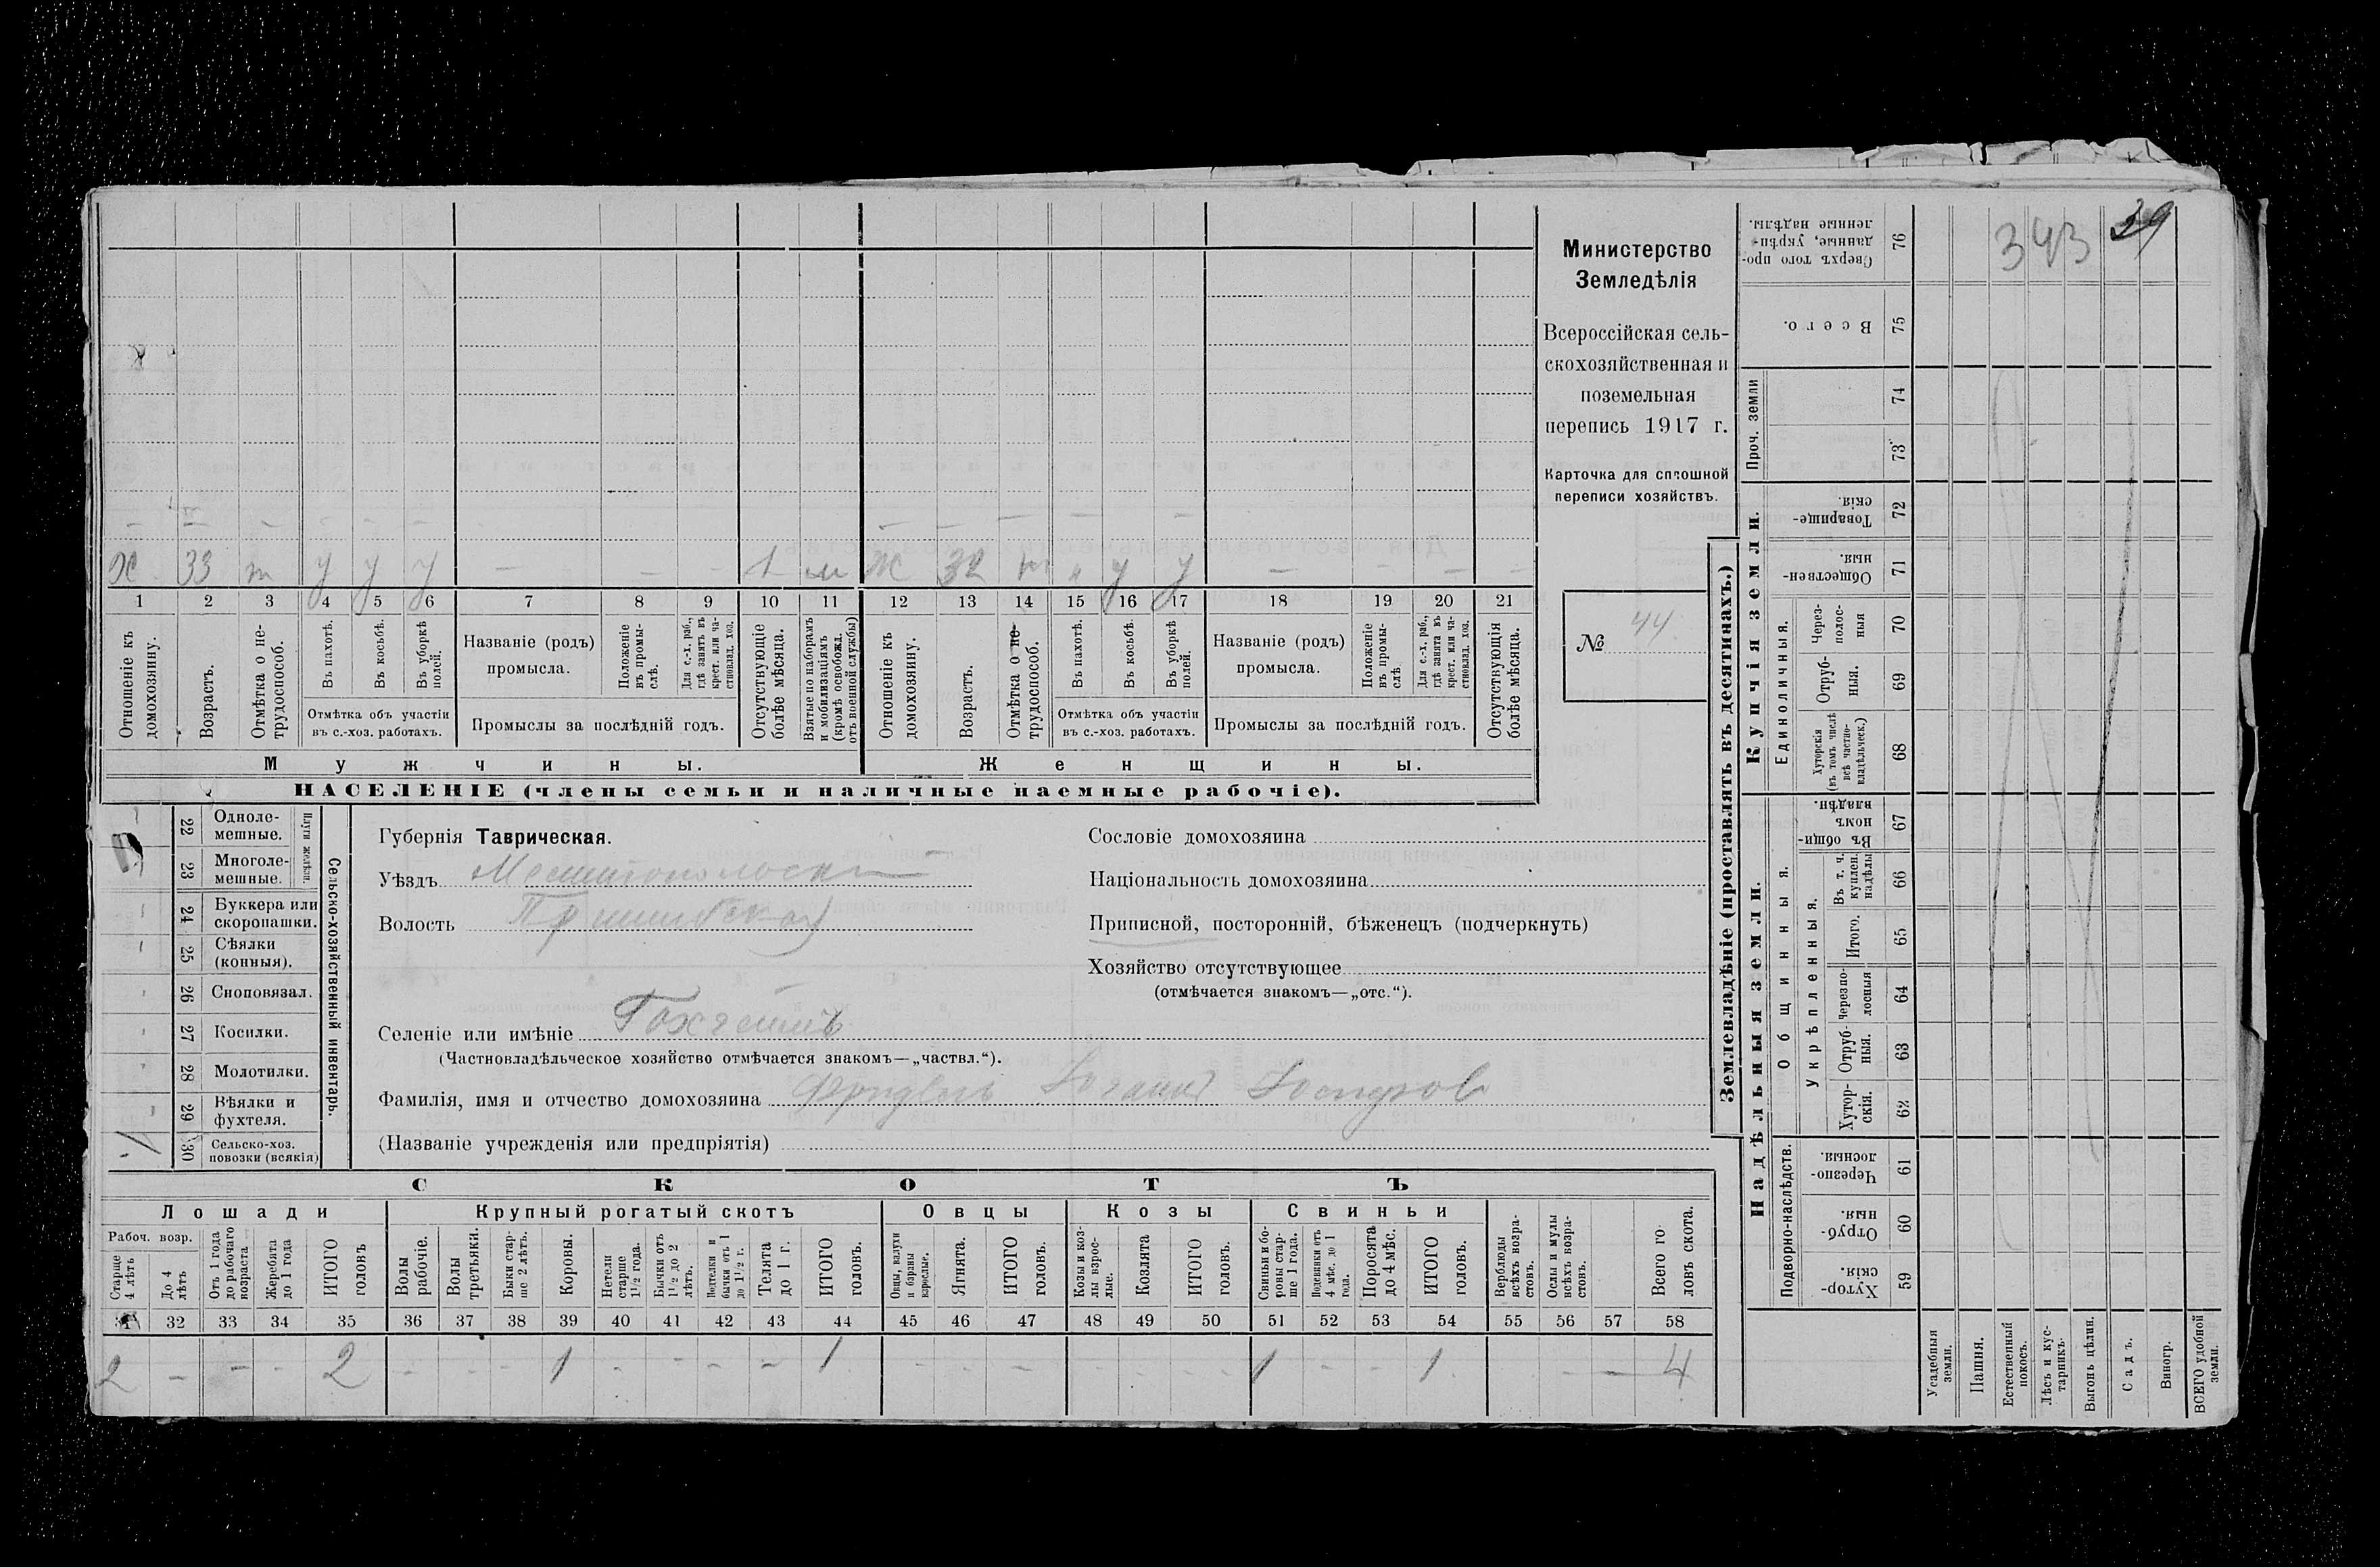 343 39
Министерство
Земледѣлія
Всероссійская сель-
скохозяйственная и
поземельная
перепись 1917 г.
Карточка для сплошной
переписи хозяйствъ.
№ 44
Х 33 т у у у — — - 1 м Ж 32 т " у у — - — -
1 2 3 4 5 6 7 8 9 10 11 12 13 14 15 16 17 18 19 20 21
Отношеніе къ домохозяину.
Возрастъ.
Отмѣтка о не-трудоспособ.
Въ пахотѣ.
Въ косьбѣ.
Въ уборкѣ полей.
Отмѣтка объ участіи въ с.-хоз. работахъ.
Названіе (родъ) промысла.
Положеніе въ промы-слѣ.
Для с.-х. раб., гдѣ занятъ въ крест. или ча-стновлад. хоз.
Промыслы за послѣдній годъ.
Отсутствующіе болѣе мѣсяца.
Взятые по наборамъ и мобилизаціямъ (кромѣ освобожд. отъ военной службы)
Отношеніе къ домохозяину.
Возрастъ.
Отмѣтка о не-трудоспособ.
Въ пахотѣ.
Въ косьбѣ.
Въ уборкѣ полей.
Отмѣтка объ участіи въ с.-хоз. работахъ.
Названіе (родъ) промысла.
Положеніе въ промы-слѣ.
Для с.-х. раб., гдѣ занята въ крест. или ча-стновлад. хоз.
Промыслы за послѣдній годъ.
Отсутствующія болѣе мѣсяца.
Мужчины. Женщины.
НАСЕЛЕНІЕ (члены семьи и наличные наемные рабочіе).
22 Одноле-мешные.
23 Многоле-мешные.
Плуги желѣзн.
24 Буккера или скоропашки.
25 Сѣялки (конныя).
26 Сноповязал.
27 Косилки.
28 Молотилки.
29 Вѣялки и фухтеля.
30 Сельско-хоз. повозки (всякія)
Сельско-хозяйственный инвентарь.
Губернія Таврическая.
Уѣздъ Мелитопольскій
Волость Пришибская
Сословіе домохозяина
Національность домохозяина
Приписной, посторонній, бѣженецъ (подчеркнуть)
Хозяйство отсутствующее
(отмѣчается знакомъ—„отс.“).
Селеніе или имѣніе Гохгеймъ
(Частновладѣльческое хозяйство отмѣчается знакомъ—„частвл.“).
Фамилія, имя и отчество домохозяина
(Названіе учрежденія или предпріятія)
СКОТЪ
Лошади Крупный рогатый скотъ Овцы Козы Свиньи
Рабоч. возр.
Старше 4 лѣтъ
До 4 лѣтъ
Отъ 1 года до рабочаго возраста
Жеребята до 1 года
ИТОГО головъ
Волы рабочіе.
Волы третьяки.
Быки стар-ше 2 лѣтъ.
Коровы.
Нетели старше 1½ года.
Бычки отъ 1½ до 2 лѣтъ.
Подтелки и бычки отъ 1 до 1½ г.
Телята до 1 г.
ИТОГО головъ.
Овцы, валухи и бараны взрослые.
Ягнята.
ИТОГО головъ.
Козы и коз-лы взрос-лые.
Козлята
ИТОГО головъ.
Свиньи и бо-ровы стар-ше 1 года.
Подсвинки отъ 4 мѣс. до 1 года.
Поросята до 4 мѣс.
ИТОГО головъ.
Верблюды всѣхъ возра-стовъ.
Ослы и мулы всѣхъ возра-стовъ.
Всего го ловъ скота.
31 32 33 34 35 36 37 38 39 40 41 42 43 44 45 46 47 48 49 50 51 52 53 54 55 56 57 58
2 — - - 2 - - - 1 - - - - 1 - - - - - - 1 - - 1 - — 4
Землевладѣніе (проставлять въ десятинахъ.)
Надѣльныя земли. Купчія земли.
Проч. земли
Подворно-наслѣдств.
Общинныя.
Укрѣпленныя.
Единоличныя.
Сверхъ того про-данные, укрѣп-ленные надѣлы. 76
Всего. 75
74
73
Товарище-скія. 72
Обществен-ныя. 71
Через-полос-ныя 70
Отруб-ныя. 69
Хуторскія (въ томъ числѣ всѣ частно-владѣльческ.) 68
Въ общи-номъ владѣн. 67
Въ т. ч. куплен. надѣлы 66
Итого. 65
Черезпо-лосныя 64
Отруб-ныя. 63
Хутор-скія. 62
Черезпо-лосныя. 61
Отруб-ныя. 60
Хутор-скія. 59
Усадебныя земли.
Пашня.
Естественный покосъ.
Лѣсъ и кус-тарникъ.
Выгонъ цѣлин.
Садъ.
Виногр.
ВСЕГО удобной земли.